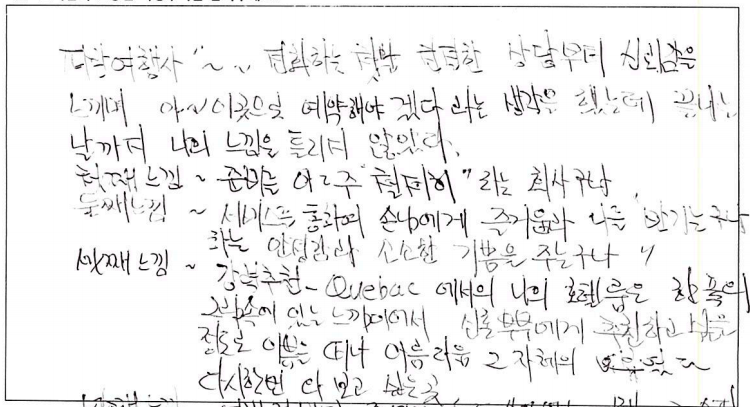 여행사 "~ .. 전화하는 친절한 상담부터 신뢰감을
느끼며 아~ 이곳으로 예약해야 겠다 라는 생각을 했는데 끝나는
날까지 나의 느낌은 틀리지 않았다.
첫째느낌 ~ 준비를 아~주 "철저히" 라는 회사구나
둘째느낌 ~ 서비스를 통하여 손님에게 즐거움과 나를 반기는구나
하는 안정감과 소소한 기쁨을 주는구나 "
셋째느낌 ~ 강력추천_ Quebac 에서의 나의 호텔룸은 한 폭의
그림속에 있는 느낌이어서 신혼부부에게 추천하고 싶을
정도로 이름을 떠나 아름다움 그 자체의
다시한번 더 보고 싶은곳